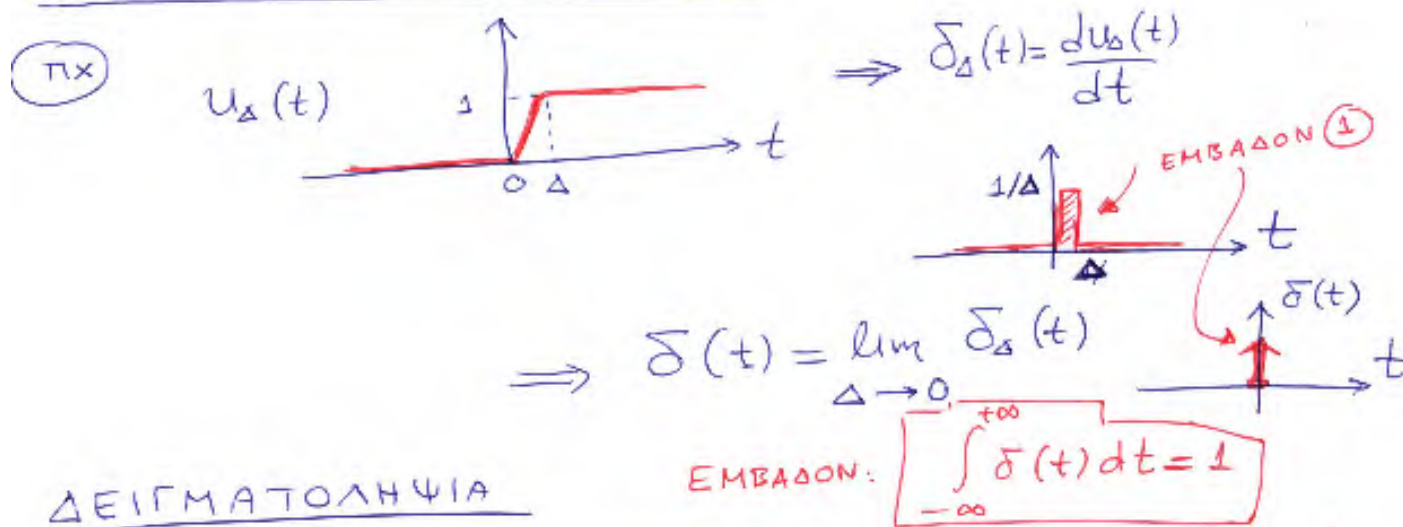 πχ
u_Δ(t)
1
0 Δ
t
⇒ δ_Δ(t) = du_Δ(t)/dt
ΕΜΒΑΔΟΝ 1
1/Δ
Δ
t
⇒ δ(t) = lim_{Δ→0} δ_Δ(t)
δ(t)
t
ΕΜΒΑΔΟΝ: ∫_{-∞}^{+∞} δ(t) dt = 1
ΔΕΙΓΜΑΤΟΛΗΨΙΑ